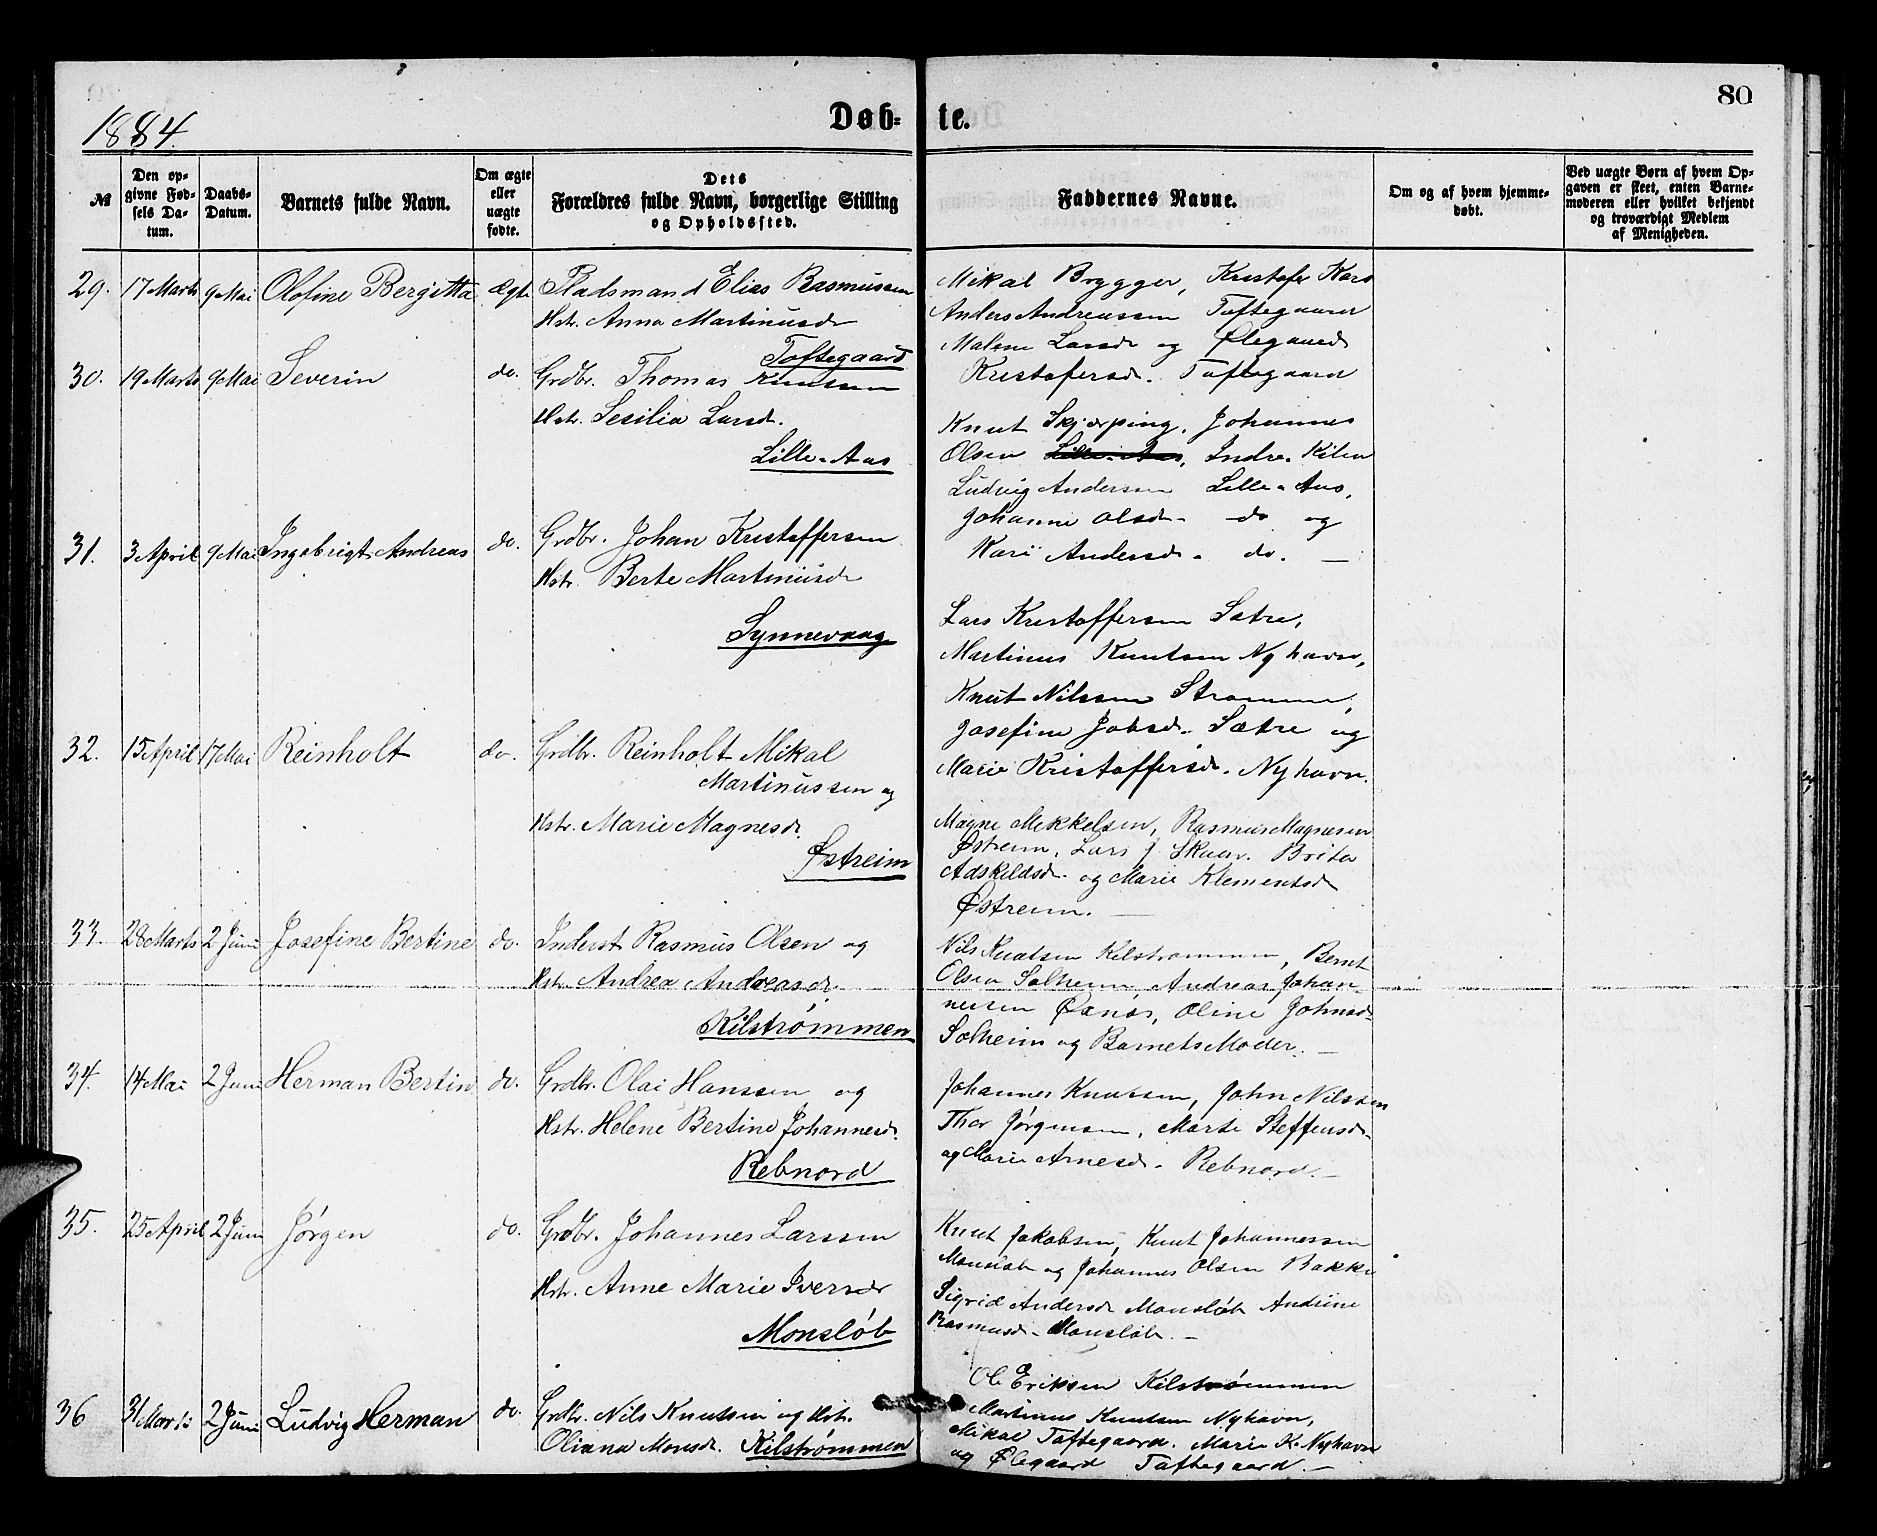 80
1884.
Døb-te.
№
Den op-
givne Fød-
sels Da-
tum.
Daabs-
Datum.
Barnets fulde Navn.
Om ægte
eller
uægte
fødte.
Dets
Forældres fulde Navn, borgerlige Stilling
og Opholdssted.
Faddernes Navne.
Om og af hvem hjemme-
døbt.
Ved uægte Børn af hvem Op-
gaven er skeet, enten Barne-
moderen eller hvilket bekjendt
og troværdigt Medlem
af Menigheden.
29. 17 Marts 9 Mai Olofine Bergitta ægte Pladsmand Elias Rasmussen
Hstr. Anna Martinusdr
Toftegaard
Mikal Brygger, Kristofer
Anders Andreassen Toftegaard
Malene Larsdr og Ølegaard
Kristofersdr. Toftegaard
30. 19 Marts 9 Mai Severin do. Grdbr. Thomas Knutsen
Hstr. Sesilia Larsdr.
Lille-Aas
Knut Skjerping, Johannes
Olsen Lille-Aas, Indre-Kilen
Ludvig Andersen Lille-Aas,
Johanne Olsdr. do og
Kari Andersdr. do. —
31. 3 April 9 Mai Ingebrigt Andreas do. Grdbr. Johan Kristoffersen
Hstr. Berte Martinusdr
Synnevaag
Lars Kristoffersen Sætre,
Martinus Knutsen Nyhavn,
Knut Nilssen Strømmen,
Josefine Jobsdr. Sætre og
Marie Kristoffersdr. Nyhavn.
32. 15 April 17 Mai Reinholt do. Grdbr. Reinholt Mikal
Martinussen og
Hstr. Marie Magnesdr.
Østreim
Magne Mikkelsen, Rasmus Magnesen
Østreim, Lars J. Skaar. Brita
Adskildsdr. og Marie Klementsdr
Østreim. —
33. 28 Marts 2 Juni Josefine Bertine do. Inderst Rasmus Olsen og
Hstr. Andrea Andreasdr.
Kilstrømmen
Nils Knutsen Kilstrømmen, Bernt
Olsen Solheim, Andreas Johan-
nessen Øxnes, Oline Johnsdr.
Solheim og Barnets Moder. —
34. 14 Mai 2 Juni Herman Bertin do. Grdbr. Olai Hanssen og
Hstr. Helene Bertine Johannesdr.
Rebnord
Johannes Knutsen, John Nilssen
Thor Jørgensen, Marte Steffensdr.
og Marie Arnesdr. Rebnord. —
35. 25 April 2 Juni Jørgen do. Grdbr. Johannes Larssen
Hstr. Anne Marie Iversdr
Monsløb
Knut Jakobsen, Knut Johannessen
Monsløb og Johannes Olsen Bakke
Sigrid Andersdr Monsløb Andrine
Rasmusdr. Monsløb. —
36 31 Marts 2 Juni Ludvig Herman do. Grdbr. Nils Knutsen og Hstr.
Oliana Monsdr. Kilstrømmen
Ole Eriksen Kilstrømmen
Martinus Knutsen Nyhavn,
Mikal Toftegaard. Marie K. Nyhavn
og Ølegaard Toftegaard. —